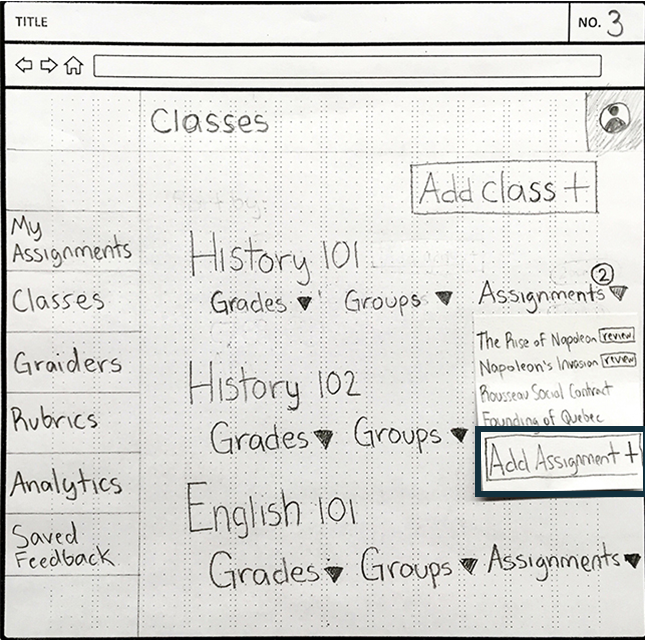 TITLE
NO. 3
Classes
Add class +
My
Assignments
Classes
Graiders
Rubrics
Analytics
Saved
Feedback
History 101
Grades Groups Assignments 2
The Rise of Napoleon review
Napoleon's Invasion review
Rousseau Social Contract
Founding of Quebec
Add Assignment +
History 102
Grades Groups
English 101
Grades Groups Assignments